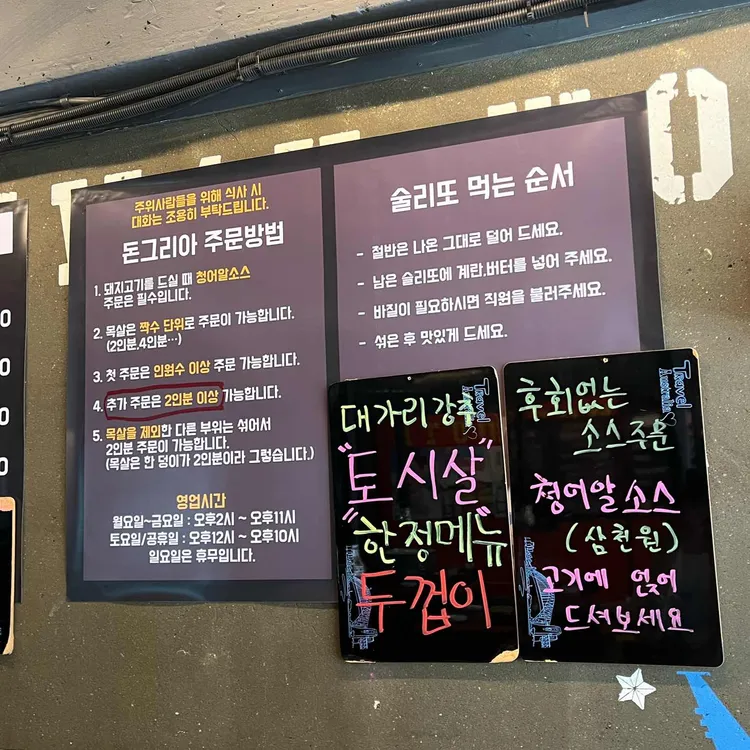 주위사람들을 위해 식사 시
대화는 조용히 부탁드립니다.
돈그리아 주문방법
1. 돼지고기를 드실 때 청어알소스
주문은 필수입니다.
2. 목살은 짝수 단위로 주문이 가능합니다.
(2인분.4인분…)
3. 첫 주문은 인원수 이상 주문 가능합니다.
4. 추가 주문은 2인분 이상 가능합니다.
5. 목살을 제외한 다른 부위는 섞어서
2인분 주문이 가능합니다.
(목살은 한 덩이가 2인분이라 그렇습니다.)
영업시간
월요일~금요일 : 오후2시 ~ 오후11시
토요일/공휴일 : 오후12시 ~ 오후10시
일요일은 휴무입니다.
술리또 먹는 순서
- 절반은 나온 그대로 덜어 드세요.
- 남은 술리또에 계란.버터를 넣어 주세요.
- 바질이 필요하시면 직원을 불러주세요.
- 섞은 후 맛있게 드세요.
대가리강추
"토시살"
"한정메뉴"
두껍이
Travel
Australia
후회없는
소스주문
청어알소스
(삼천원)
고기에 얹어
드셔보세요
Travel
Australia
0
0
0
0
O